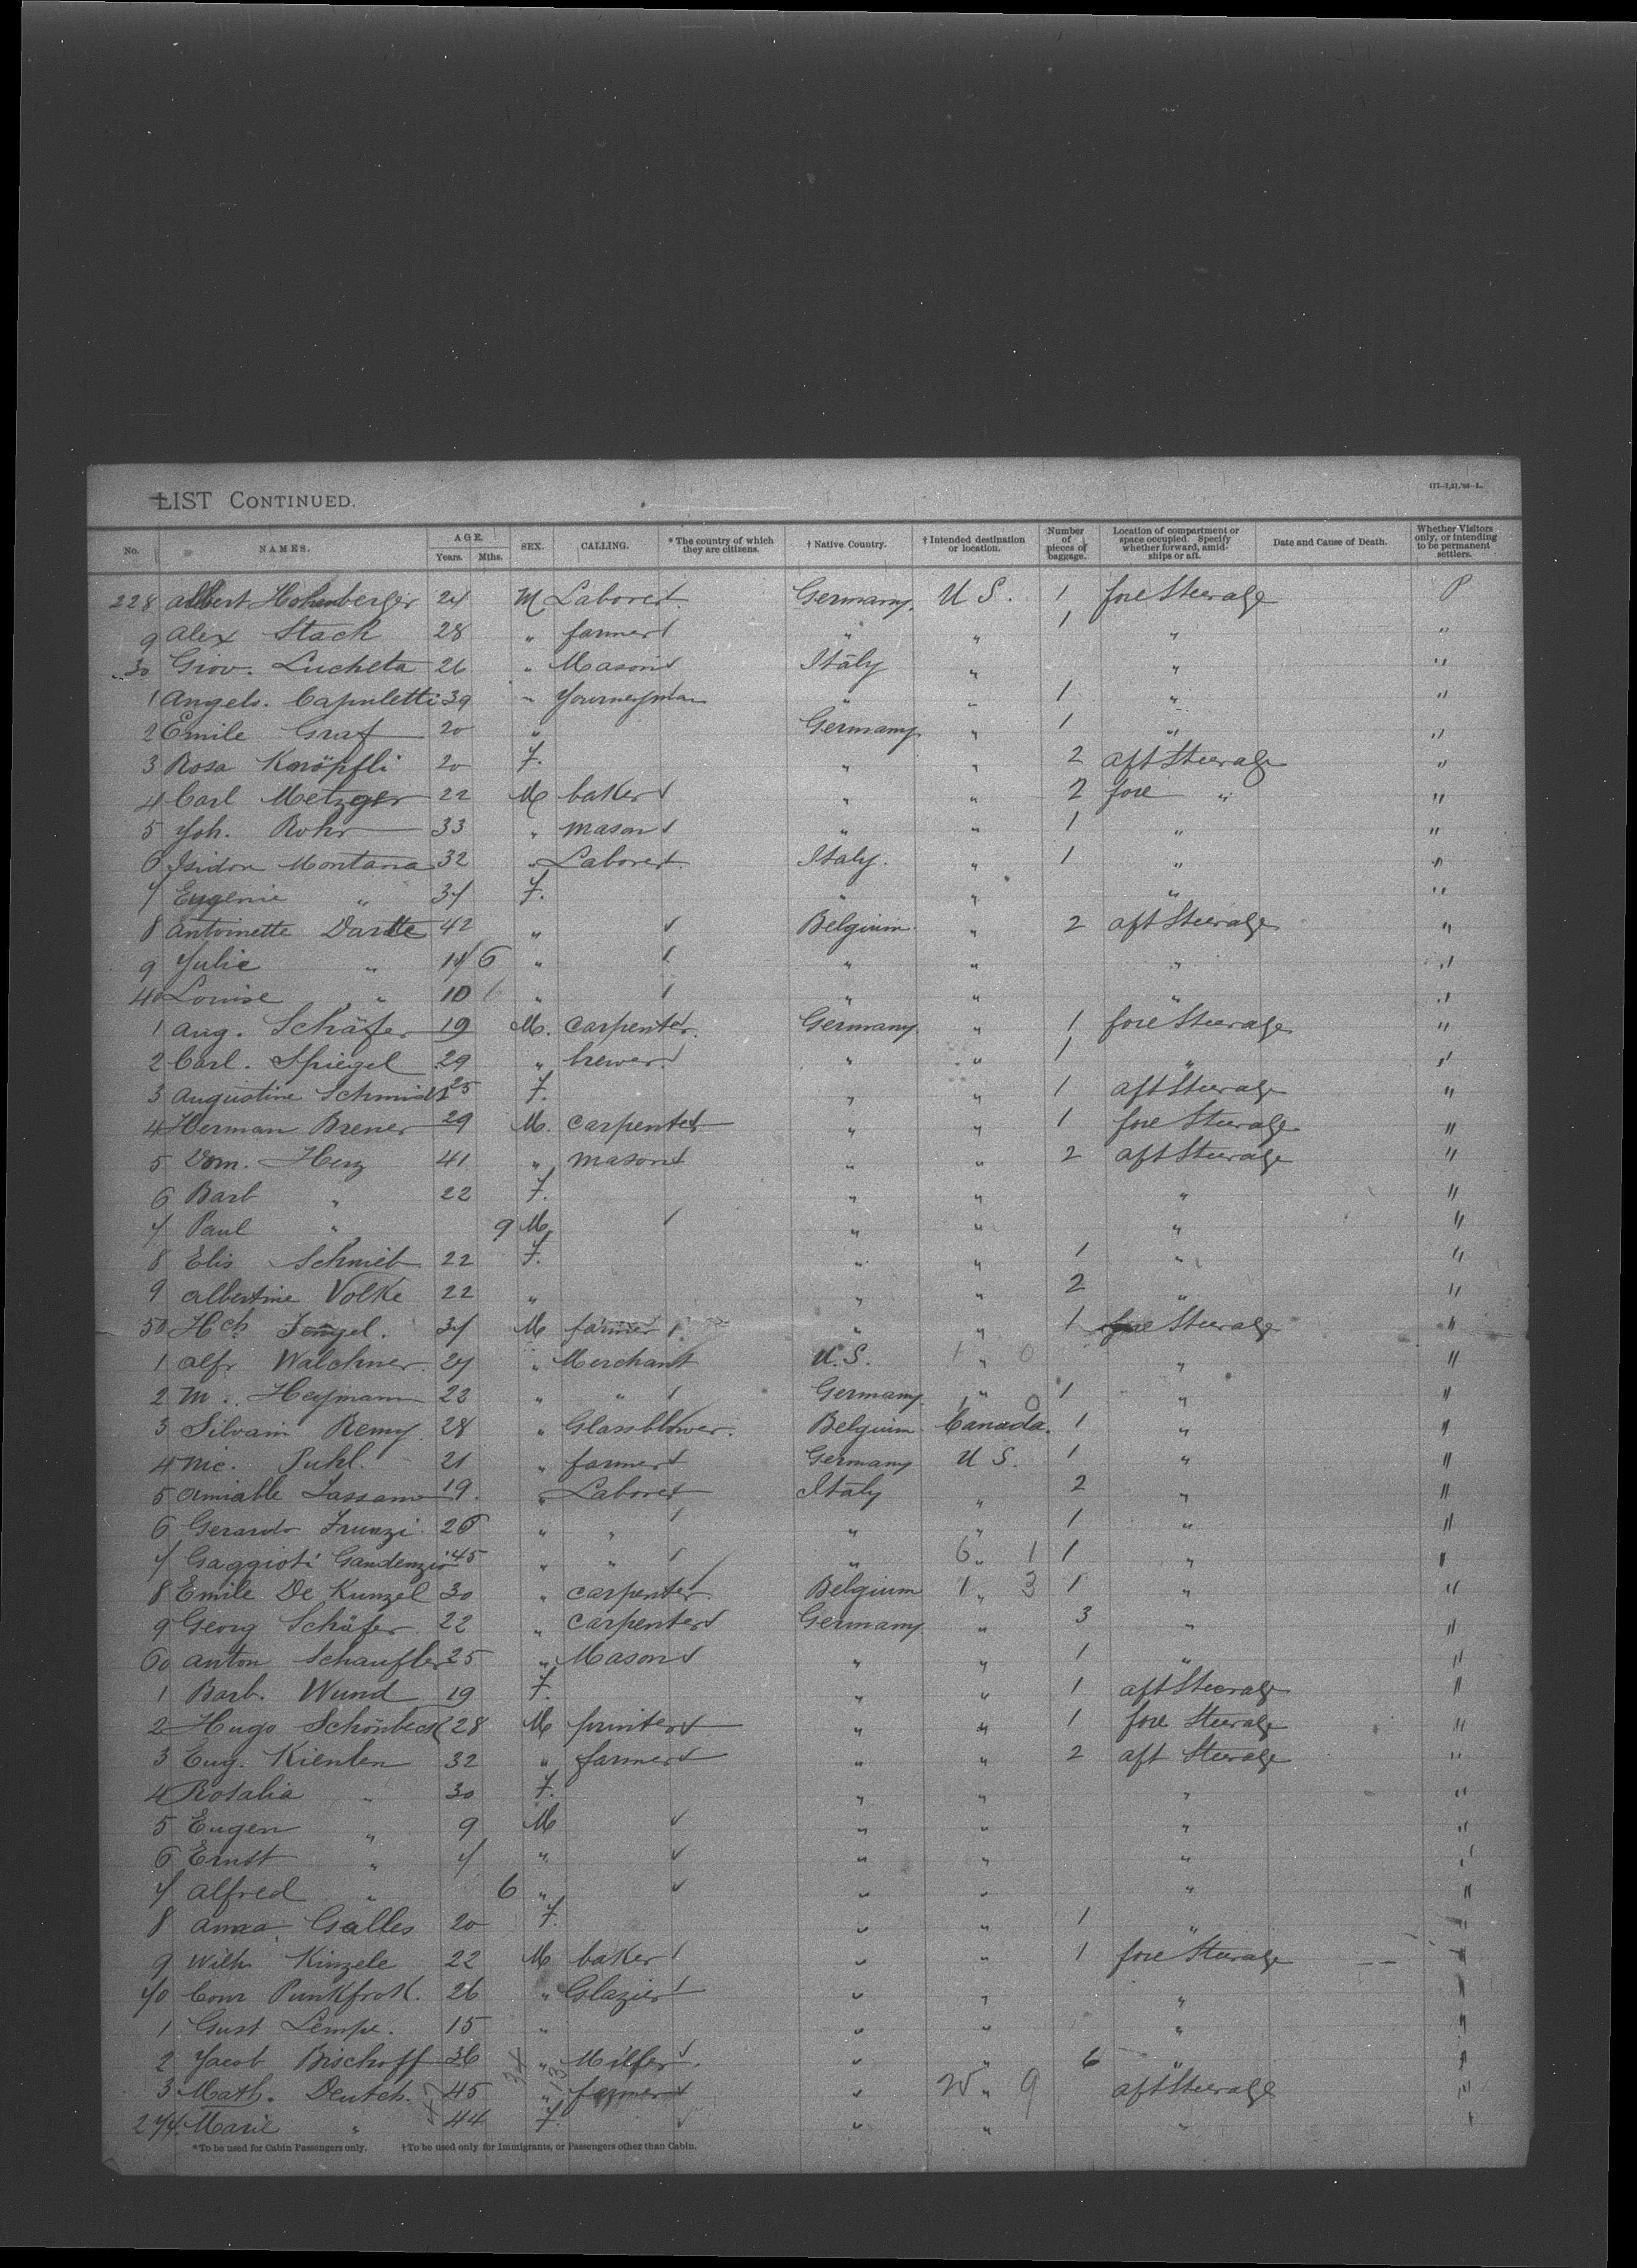 LIST CONTINUED.
No. NAMES. AGE. Years. Mths. SEX. CALLING. * The country of which they are citizens. † Native Country. † Intended destination or location. Number of pieces of baggage. Location of compartment or space occupied. Specify whether forward, amidships or aft. Date and Cause of Death. Whether Visitors only, or intending to be permanent settlers.
228 Albert Hohenberger 24 M Laborer Germany. U S. 1 fore Steerage P
9 Alex Stack 28 " farmer " " 1 " "
30 Giov. Lucheta 26 " Mason Italy " " "
1 Angelo. Capuletti 39 " Journeyman " " 1 " "
2 Emile Graf 20 " Germany " 1 " "
3 Rosa Knöpfli 20 F. " " 2 aft Steerage "
4 Carl Metzger 22 M baker " " 2 fore " "
5 Joh. Rohr 33 " mason " " 1 " "
6 Isidor Montana 32 " Laborer Italy. " 1 " "
7 Eugenie " 37 F. " " " "
8 Antoinette Dardte 42 " Belgium " 2 aft Steerage "
9 Julie " 14 6 " " " " "
40 Louise " 10 " " " " "
1 Aug. Schäfer 19 M. carpenter Germany " 1 fore Steerage "
2 Carl. Spiegel 29 " brewer " " 1 " "
3 Augustine Schmidt 25 F. " " 1 aft Steerage "
4 Herman Brener 29 M. carpenter " " 1 fore Steerage "
5 Dom. Herz 41 " mason " " 2 aft Steerage "
6 Barb " 22 F. " " " "
7 Paul " 9 M " " " "
8 Elis Schmieb 22 F. " " 1 " "
9 Albertine Volke 22 " " " 2 " "
50 Hch Fengel. 37 M farmer " " 1 fore Steerage "
1 Alfr Walchner 27 " Merchant U. S. 1 " 0 " "
2 M. Heymann 23 " " Germany " 1 " "
3 Silvain Remy. 28 " Glassblower. Belgium Canada. 1 " "
4 Nic. Puhl. 21 " farmer Germany U S. 1 " "
5 Amiable Tassano 19. " Laborer Italy " 2 " "
6 Gerardo Frunzi 26 " " " " 1 " "
7 Gaggioti Gandenzio 45 " " " 6 " 1 1 " "
8 Emile De Kunzel 30 " carpenter Belgium 1 " 3 1 " "
9 Georg Schäfer 22 " carpenter Germany " 3 " "
60 Anton Schaufler 25 " Mason " " 1 " "
1 Barb. Wund 19 F. " " 1 aft Steerage "
2 Hugo Schönbeck 28 M printer " " 1 fore Steerage "
3 Eug. Kienlen 32 " farmer " " 2 aft Steerage "
4 Rosalia " 30 F. " " " "
5 Eugen " 9 M " " " "
6 Ernst " 7 " " " " "
7 Alfred " 6 " " " " "
8 Anna Galles 20 F. " " 1 " "
9 Wilh Kinzele 22 M baker " " 1 fore Steerage "
70 Conr Punkfrok. 26 " Glazier " " " "
1 Gust Lempe. 15 " " " " "
2 Jacob Bischoff 36 " Miller " " 6 " "
3 Math. Deutch. 45 " farmer " " 9 aft Steerage "
274 Marie " 44 F. " " " "
* To be used for Cabin Passengers only. † To be used only for Immigrants, or Passengers other than Cabin.